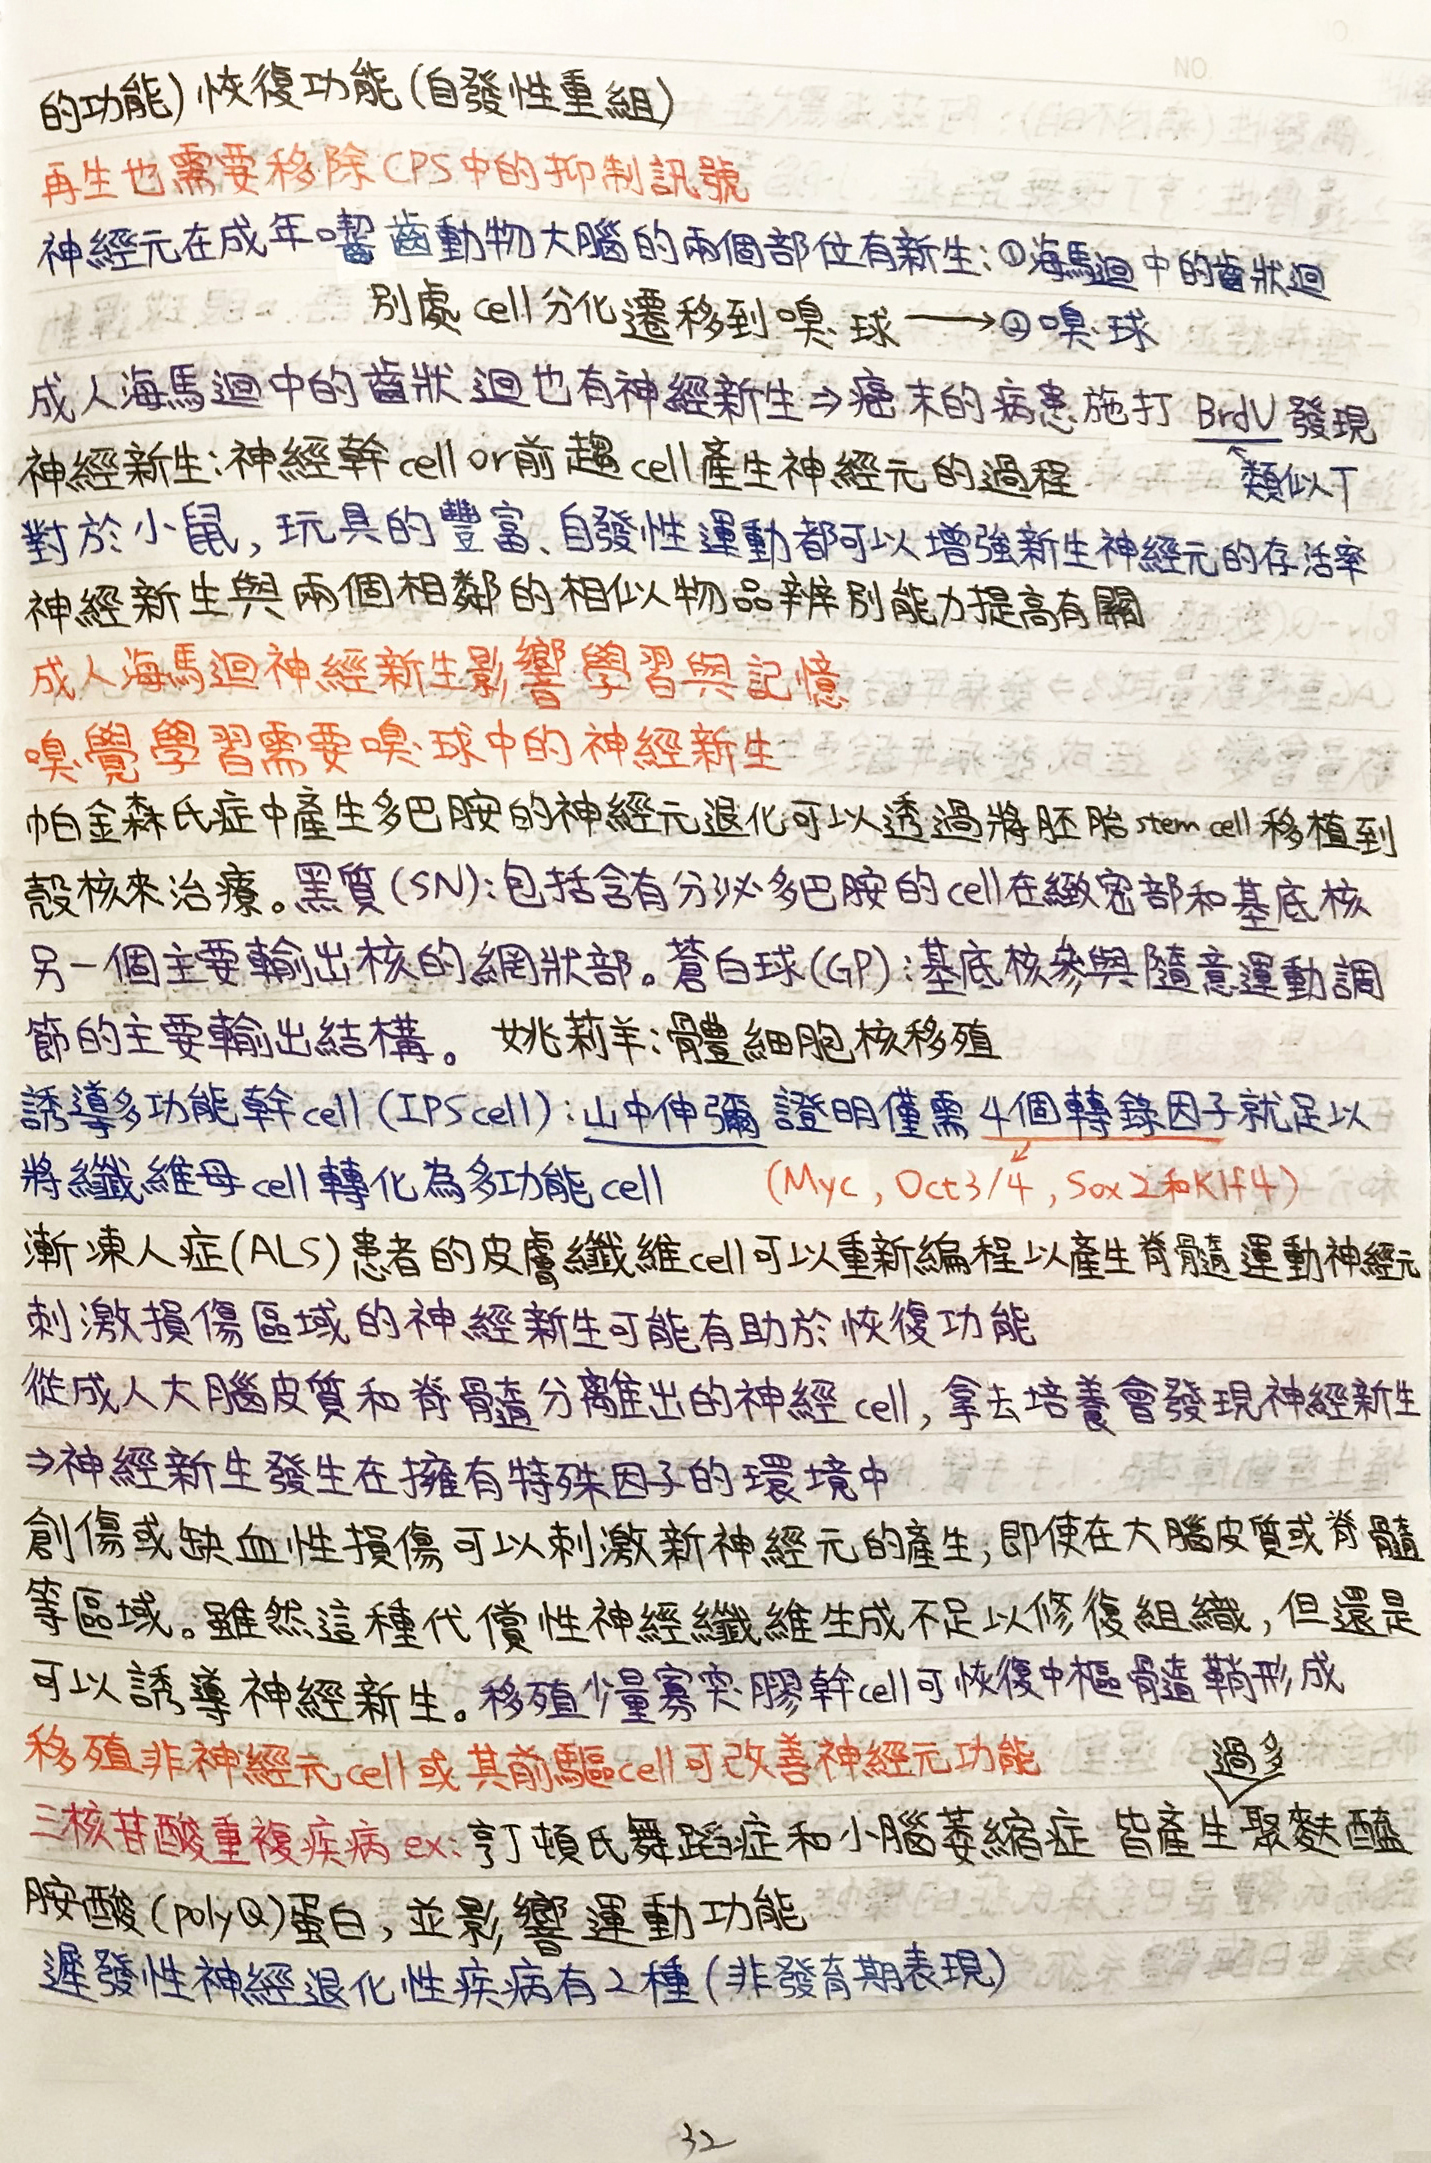 的功能)恢復功能(自發性重組)
再生也需要移除CPS中的抑制訊號
神經元在成年嚙齒動物大腦的兩個部位有新生:①海馬迴中的齒狀迴
別處cell分化遷移到嗅球→②嗅球
成人海馬迴中的齒狀迴也有神經新生⇒癌末的病患施打BrdU發現
神經新生:神經幹cell or前趨cell產生神經元的過程 類似T
對於小鼠,玩具的豐富、自發性運動都可以增強新生神經元的存活率
神經新生與兩個相鄰的相似物品辨別能力提高有關
成人海馬迴神經新生影響學習與記憶
嗅覺學習需要嗅球中的神經新生
帕金森氏症中產生多巴胺的神經元退化可以透過將胚胎stem cell移植到
殼核來治療。黑質(SN):包括含有分泌多巴胺的cell在緻密部和基底核
另一個主要輸出核的網狀部。蒼白球(GP):基底核參與隨意運動調
節的主要輸出結構。 姚莉羊:體細胞核移殖
誘導多功能幹cell(IPS cell):山中伸彌 證明僅需4個轉錄因子就足以
將纖維母cell轉化為多功能cell (Myc,Oct3/4,Sox2和Klf4)
漸凍人症(ALS)患者的皮膚纖維cell可以重新編程以產生脊髓運動神經元
刺激損傷區域的神經新生可能有助於恢復功能
從成人大腦皮質和脊髓分離出的神經cell,拿去培養會發現神經新生
⇒神經新生發生在擁有特殊因子的環境中
創傷或缺血性損傷可以刺激新神經元的產生,即使在大腦皮質或脊髓
等區域。雖然這種代償性神經纖維生成不足以修復組織,但還是
可以誘導神經新生。移殖少量寡突膠幹cell可恢復中樞髓鞘形成
移殖非神經元cell或其前驅cell可改善神經元功能
過多
三核苷酸重複疾病ex:亨丁頓氏舞蹈症和小腦萎縮症 皆產生聚麩醯
胺酸(polyQ)蛋白,並影響運動功能
遲發性神經退化性疾病有2種(非發育期表現)
32